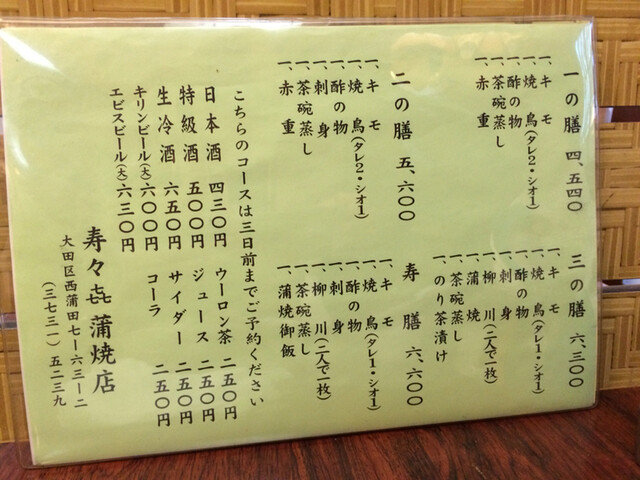 一の膳 四、五四〇
一、キモ
一、焼鳥(タレ2・シオ1)
一、酢の物
一、茶碗蒸し
一、赤重
三の膳 六、三〇〇
一、キモ
一、焼鳥(タレ1・シオ1)
一、酢の物
一、刺身
一、柳川(二人で一枚)
一、蒲焼
一、茶碗蒸し
一、のり茶漬け
二の膳 五、六〇〇
一、キモ
一、焼鳥(タレ2・シオ1)
一、酢の物
一、刺身
一、茶碗蒸し
一、赤重
寿膳 六、六〇〇
一、キモ
一、焼鳥(タレ1・シオ1)
一、酢の物
一、刺身
一、柳川(二人で一枚)
一、茶碗蒸し
一、蒲焼御飯
こちらのコースは三日前までご予約ください
日本酒 四三〇円
特級酒 五〇〇円
生冷酒 六五〇円
キリンビール(大) 六〇〇円
エビスビール(大) 六三〇円
ウーロン茶 二五〇円
ジュース 二五〇円
サイダー 二五〇円
コーラ 二五〇円
寿々㐂 蒲焼店
大田区西蒲田七ー六三ー二
(三七三一)五二三九